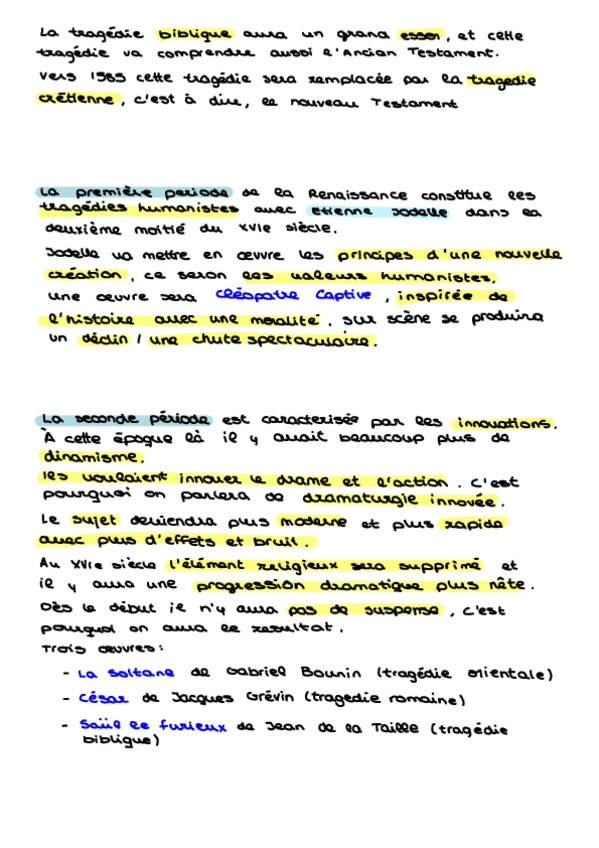 La tragédie biblique aura un grand essor, et cette
tragédie va comprendre aussi l'Ancian Testament.
Vers 1585 cette tragédie sera remplacée par la tragedie
crétienne, c'est à dire, le nouveau Testament
La première periode de la Renaissance constitue les
tragédies humanistes avec etienne Jodelle dans la
deuxième moitié du XVIe siècle.
Jodelle va mettre en œuvre les principes d'une nouvelle
création, ce seron les valeurs humanistes.
Une œuvre sera Cléopatre Captive, inspirée de
l'histoire avec une moralité, sur scène se produira
un déclin / une chute spectaculaire.
La seconde période est caracterisée par les innovations.
À cette époque là il y avait beaucoup plus de
dinamisme.
Ils voulaient innover le drame et l'action. C'est
pourquoi on parlera de dramaturgie innovée.
Le sujet deviendra plus moderne et plus rapide
avec plus d'effets et bruit.
Au XVIe siècle l'élément religieux sera supprimé et
il y aura une progression dramatique plus nête.
Dès le début il n'y aura pas de suspense, c'est
pourquoi on aura le resultat.
Trois œuvres:
- La Soltane de Gabriel Bounin (tragédie orientale)
- César de Jacques Grévin (tragedie romaine)
- Saül le furieux de Jean de la Taille (tragédie
biblique)